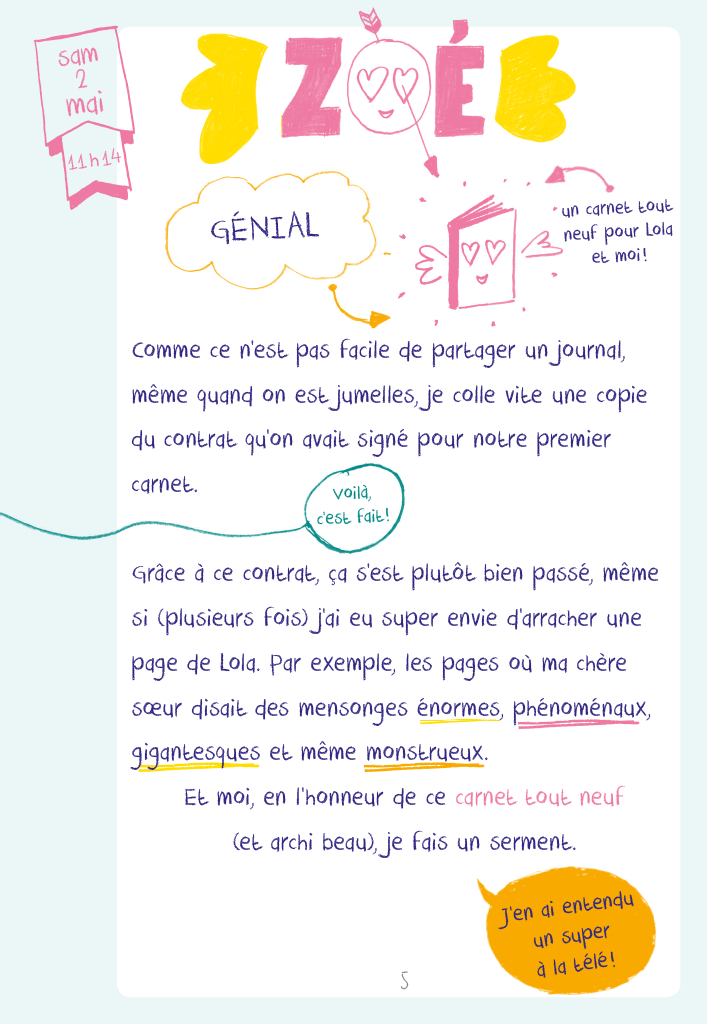 sam
2
mai
11h14
ZOÉ
GÉNIAL
un carnet tout
neuf pour Lola
et moi!
Comme ce n'est pas facile de partager un journal,
même quand on est jumelles, je colle vite une copie
du contrat qu'on avait signé pour notre premier
carnet.
Voilà,
c'est fait!
Grâce à ce contrat, ça s'est plutôt bien passé, même
si (plusieurs fois) j'ai eu super envie d'arracher une
page de Lola. Par exemple, les pages où ma chère
sœur disait des mensonges énormes, phénoménaux,
gigantesques et même monstrueux.
Et moi, en l'honneur de ce carnet tout neuf
(et archi beau), je fais un serment.
J'en ai entendu
un super
à la télé!
5